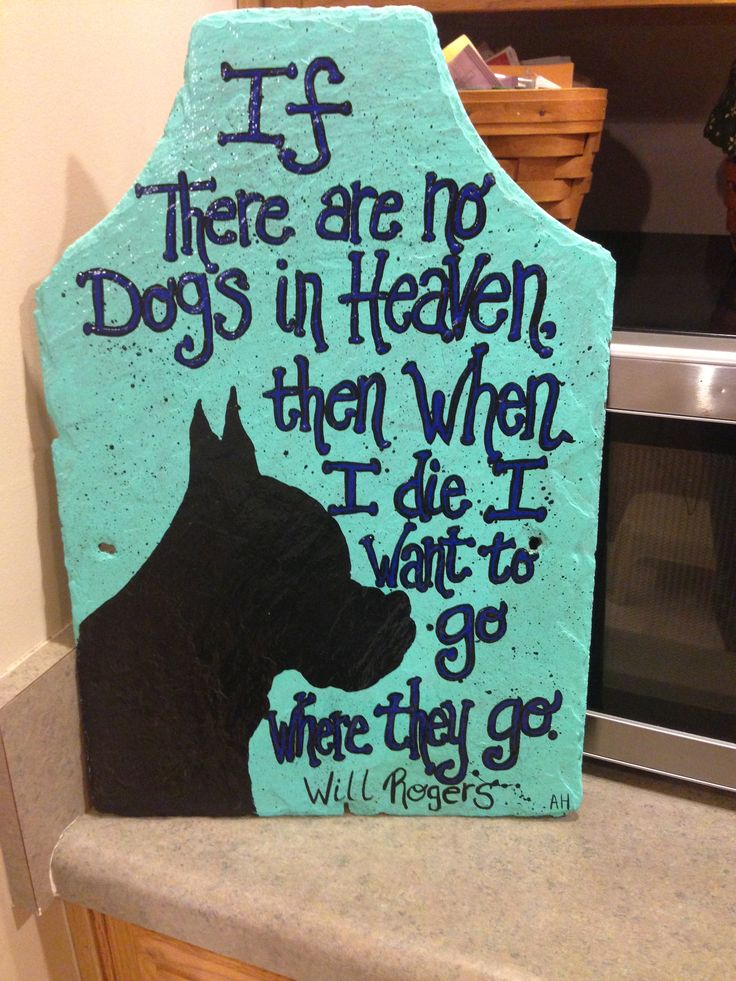 If
There are no
Dogs in Heaven,
then when
I die I
want to
go
where they go.
Will Rogers
AH